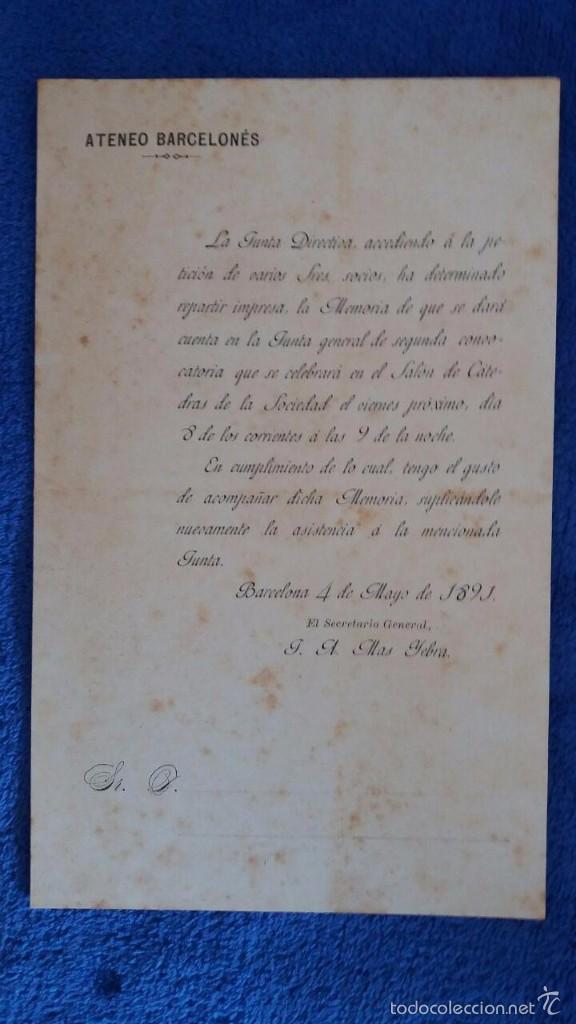 ATENEO BARCELONÉS
La Junta Directiva, accediendo á la pe-
tición de varios Sres. socios, ha determinado
repartir impresa, la Memoria de que se dará
cuenta en la Junta general de segunda convo-
catoria que se celebrará en el Salón de Cáte-
dras de la Sociedad el viernes próximo, día
8 de los corrientes á las 9 de la noche.
En cumplimiento de lo cual, tengo el gusto
de acompañar dicha Memoria, suplicándole
nuevamente la asistencia á la mencionada
Junta.
Barcelona 4 de Mayo de 1891.
El Secretario General,
J. A. Mas Yebra.
Sr. D.
TC
todocoleccion.net